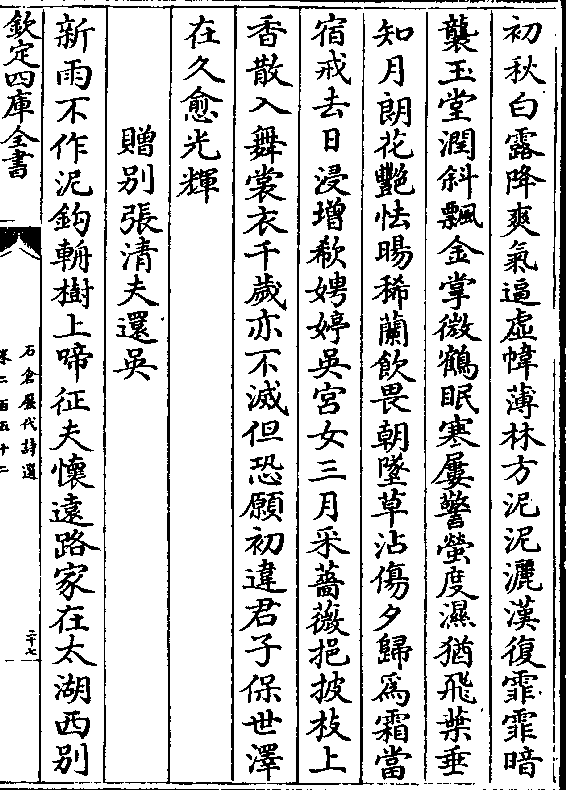 初秋白露降爽氣逼虚幃薄林方泥泥灑漢復霏霏暗
襲玉堂潤斜飄金掌微鶴眠寒屢警螢度濕猶飛葉垂
知月朗花艷怯暘稀蘭飲畏朝墜草沾傷夕歸爲霜當
宿戒去日浸增欷娉婷吳宮女三月采薔薇挹披枝上
香散入舞裳衣千歲亦不滅但恐願初違君子保世澤
在久愈光輝
贈別張清夫還吳
新雨不作泥鉤輈樹上啼征夫懷遠路家在太湖西別
欽定四庫全書
石倉歷代詩選
卷二百五十二
二十七